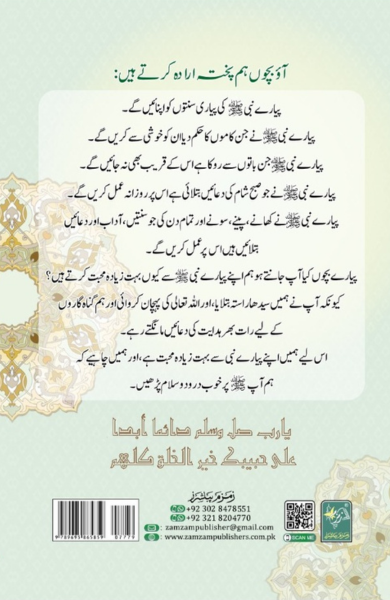 آؤ بچوں ہم پختہ ارادہ کرتے ہیں:
پیارے نبی ﷺ کی پیاری سنتوں کو اپنائیں گے۔
پیارے نبی ﷺ نے جن کاموں کا حکم دیا ان کو خوشی سے کریں گے۔
پیارے نبی ﷺ جن باتوں سے روکا ہے اس کے قریب بھی نہ جائیں گے۔
پیارے نبی ﷺ نے جو صبح شام کی دعائیں بتلائی ہے اس پر روزانہ عمل کریں گے۔
پیارے نبی ﷺ نے کھانے، پینے، سونے اور تمام دن کی جو سنتیں، آداب اور دعائیں
بتلائیں ہیں اس پر عمل کریں گے۔
پیارے بچوں کیا آپ جانتے ہو ہم اپنے پیارے نبی ﷺ سے کیوں بہت زیادہ محبت کرتے ہیں؟
کیونکہ آپ نے ہمیں سیدھا راستہ بتلایا، اور اللہ تعالی کی پہچان کروائی اور ہم گناہ گاروں
کے لیے رات بھر ہدایت کی دعائیں مانگتے رہے۔
اس لیے ہمیں اپنے پیارے نبی سے بہت زیادہ محبت ہے، اور ہمیں چاہیے کہ
ہم آپ ﷺ پر خوب درود و سلام پڑھیں۔
يا رب صل وسلم دائما أبدا
على حبيبك خير الخلق كلهم
زمزم پبلشرز
+92 302 8478551
+92 321 8204770
zamzampublisher@gmail.com
www.zamzampublishers.com.pk
SCAN ME
زمزم پبلشرز
9 789695 865819
07779